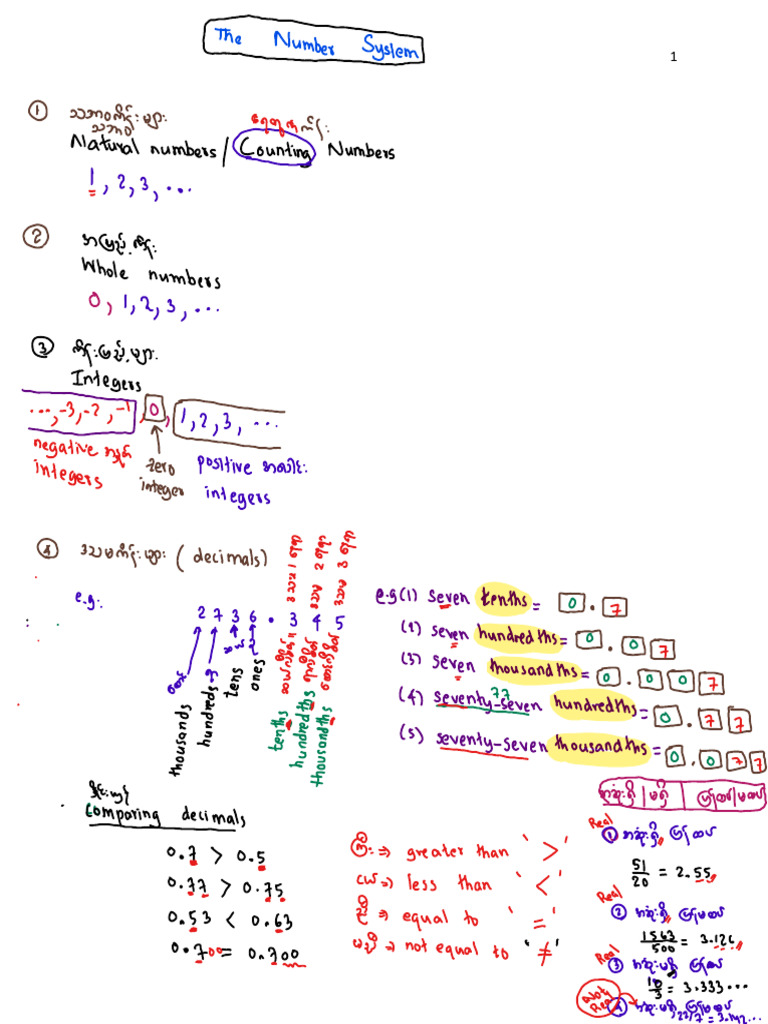 The Number System
1
① သဘာဝကိန်းများ
သဘာဝ ရေတွက်ကိန်း
Natural numbers / Counting Numbers
1, 2, 3, ...
② အပြည့်ကိန်း
Whole numbers
0, 1, 2, 3, ...
③ ကိန်းပြည့်များ
Integers
..., -3, -2, -1, 0, 1, 2, 3, ...
negative အနှုတ် zero positive အပေါင်း
integers integer integers
④ ဒသမကိန်းများ (decimals)
e.g:
2 7 3 6 . 3 4 5
ဒသမ 1 နေရာ
ဒသမ 2 နေရာ
ဒသမ 3 နေရာ
thousands
hundreds
tens
ones
tenths
hundredths
thousandths
e.g (1) seven tenths = 0 . 7
(2) seven hundredths = 0 . 0 7
(3) seven thousandths = 0 . 0 0 7
77
(4) seventy-seven hundredths = 0 . 7 7
(5) seventy-seven thousandths = 0 . 0 7 7
နှိုင်းယှဉ်
Comparing decimals
0.7 > 0.5
0.77 > 0.75
0.53 < 0.63
0.700 = 0.700
ကြီး ⇒ greater than ' > '
ငယ် ⇒ less than ' < '
ညီ ⇒ equal to ' = '
မညီ ⇒ not equal to ' ≠ '
အဆုံးရှိ | မရှိ | ပြန်ထပ် | မထပ်
Real
① အဆုံးရှိ ပြန်ထပ်
51/20 = 2.55
Real
② အဆုံးရှိ ပြန်မထပ်
1563/500 = 3.126
Real
③ အဆုံးမရှိ ပြန်ထပ်
10/3 = 3.333...
④ အဆုံးမရှိ ပြန်မထပ်
22/7 = 3.142...